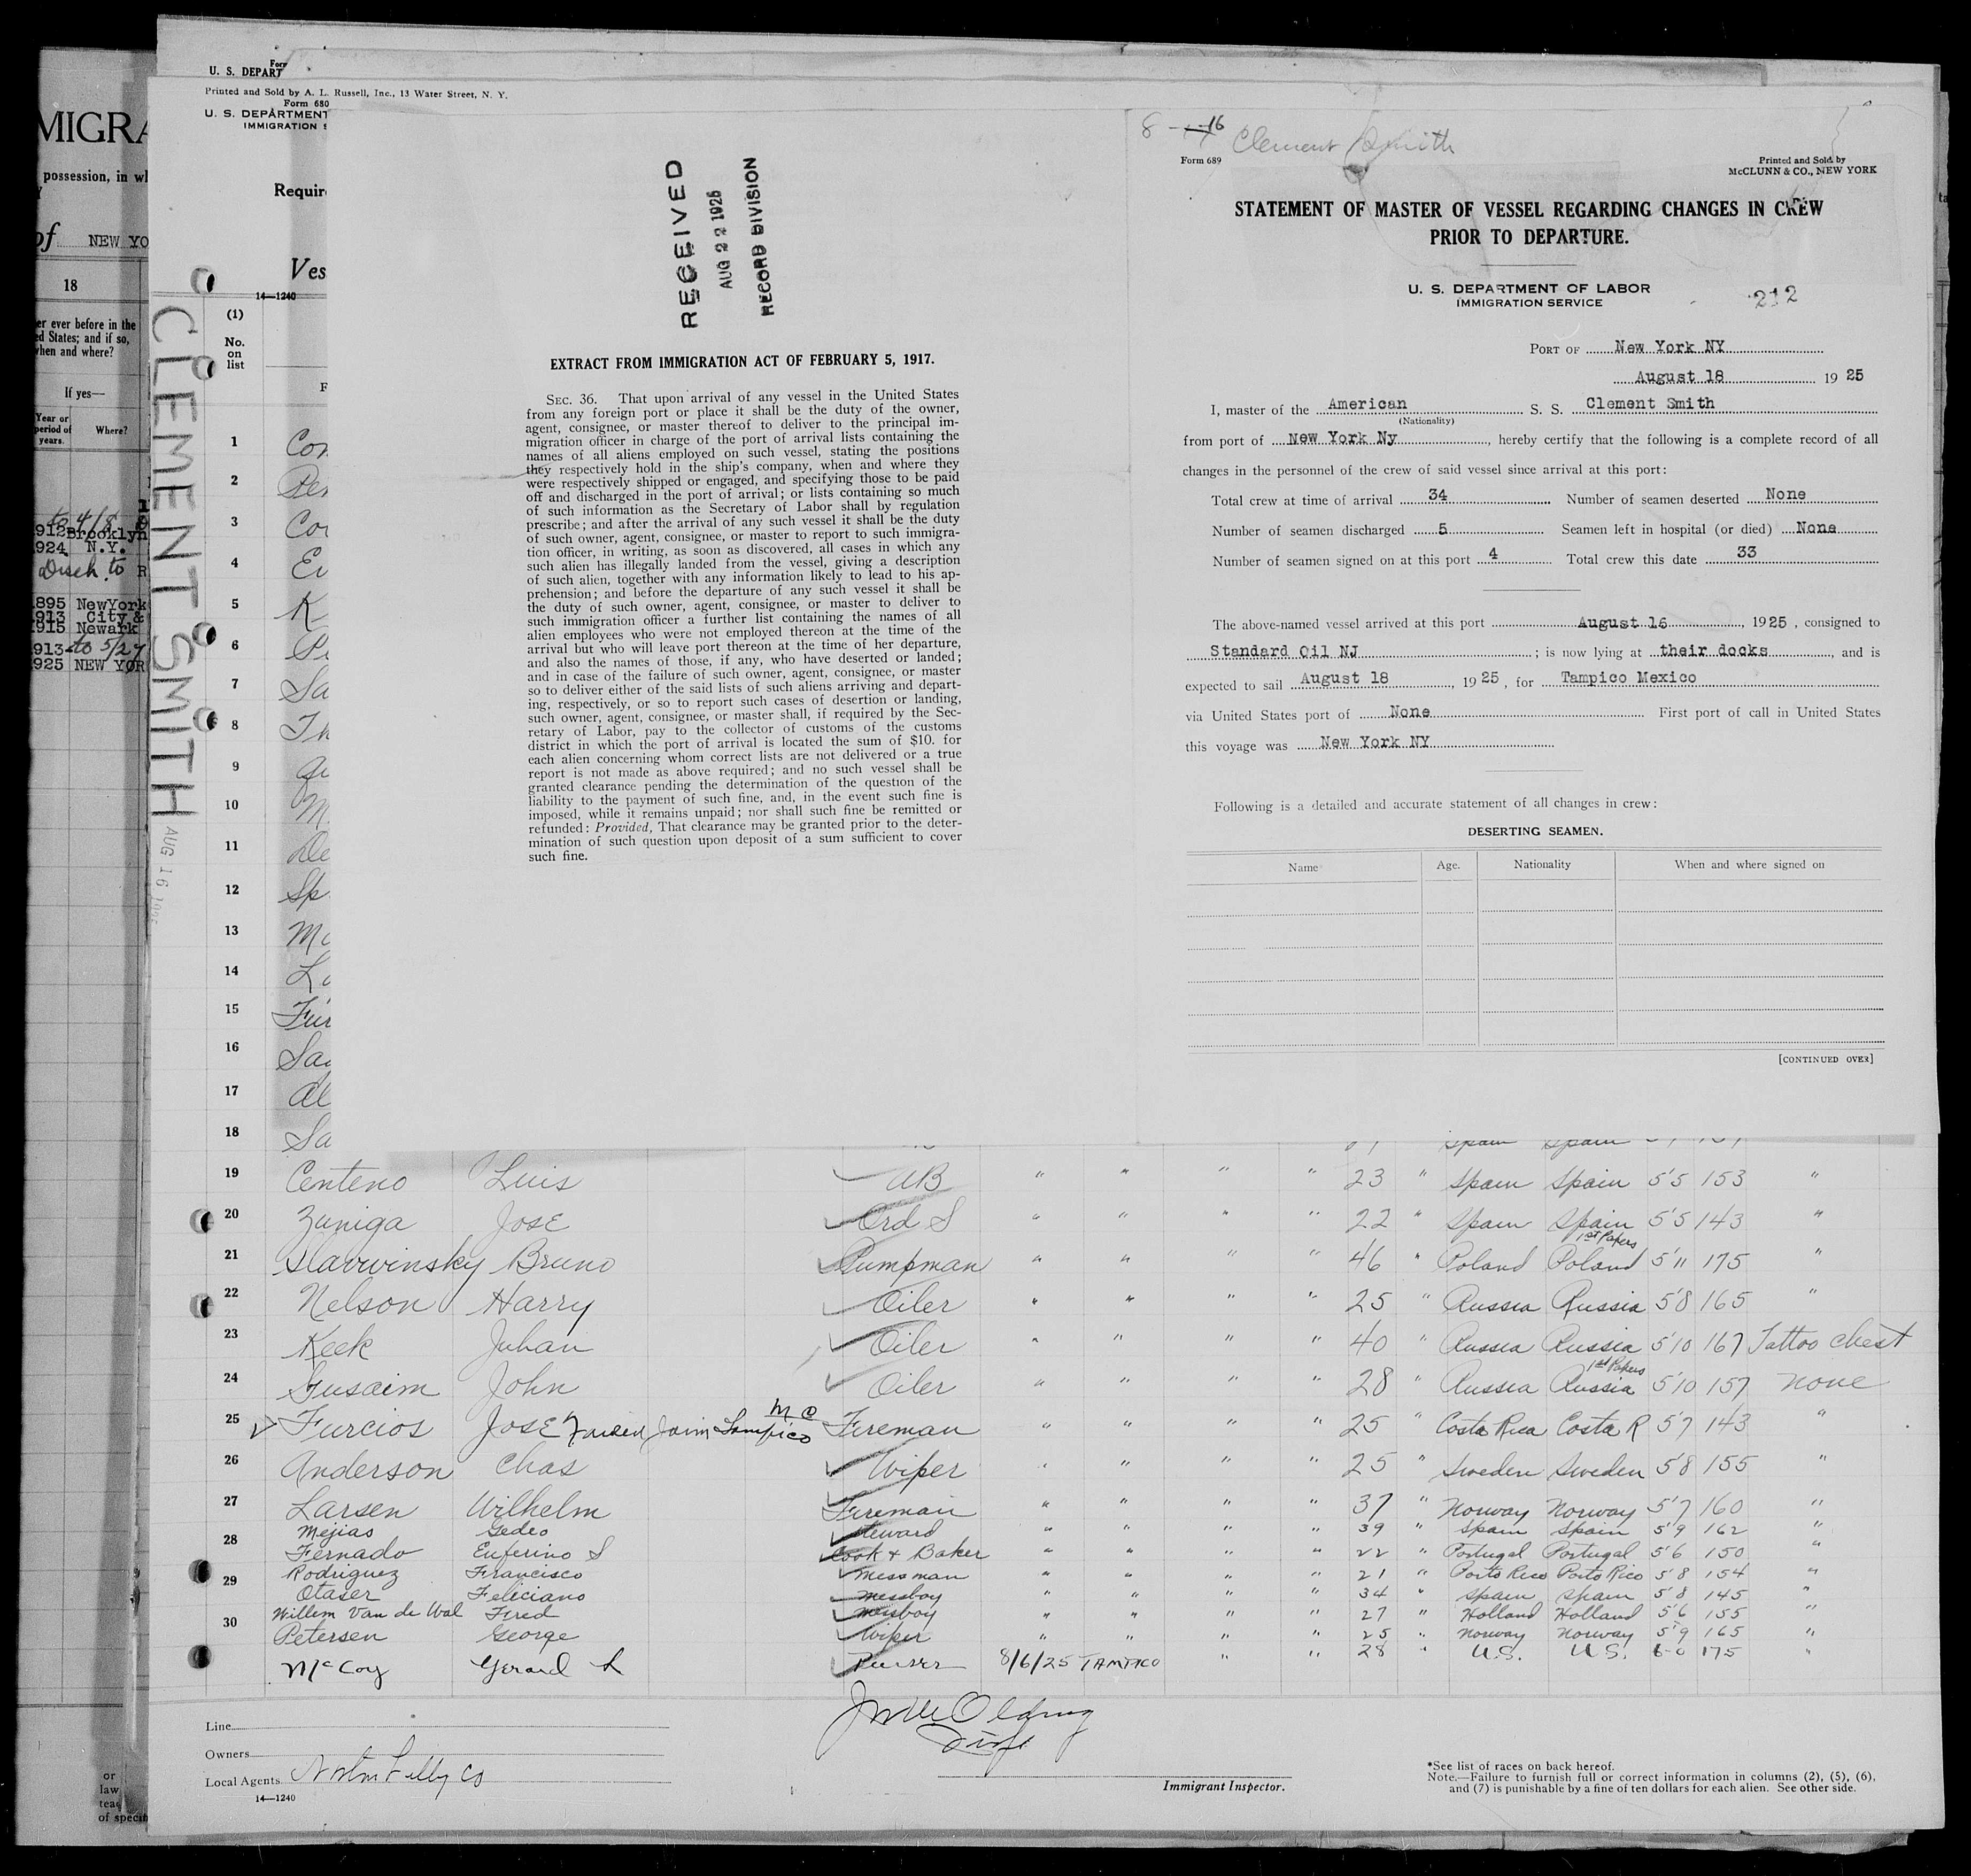 MIGRA
possession, in wh
of NEW YO
18
er ever before in the
ed States; and if so,
when and where?
If yes—
Year or period of years.
Where?
to 4/8
1912 Brooklyn
1924 N.Y.
Disch. to R
1895 NewYork
1913 City &
1915 Newark
1913 to 5/27
1925 NEW YOR
or
law
teac
of specif
Form
U. S. DEPART
Printed and Sold by A. L. Russell, Inc., 13 Water Street, N. Y.
Form 680
U. S. DEPARTMENT
IMMIGRATION S
Require
Ves
14—1240
CLEMENT SMITH AUG 16
(1)
No. on list
F
1 Con
2 Per
3 Cor
4 Ev
5 K
6 Pe
7 Sa
8 Th
9
10 M
11 De
12 Sp
13 Mc
14 Lo
15 Fur
16 Say
17 Al
18 Sa
RECEIVED
AUG 22 1925
RECORD DIVISION
EXTRACT FROM IMMIGRATION ACT OF FEBRUARY 5, 1917.
SEC. 36. That upon arrival of any vessel in the United States
from any foreign port or place it shall be the duty of the owner,
agent, consignee, or master thereof to deliver to the principal im-
migration officer in charge of the port of arrival lists containing the
names of all aliens employed on such vessel, stating the positions
they respectively hold in the ship's company, when and where they
were respectively shipped or engaged, and specifying those to be paid
off and discharged in the port of arrival; or lists containing so much
of such information as the Secretary of Labor shall by regulation
prescribe; and after the arrival of any such vessel it shall be the duty
of such owner, agent, consignee, or master to report to such immigra-
tion officer, in writing, as soon as discovered, all cases in which any
such alien has illegally landed from the vessel, giving a description
of such alien, together with any information likely to lead to his ap-
prehension; and before the departure of any such vessel it shall be
the duty of such owner, agent, consignee, or master to deliver to
such immigration officer a further list containing the names of all
alien employees who were not employed thereon at the time of the
arrival but who will leave port thereon at the time of her departure,
and also the names of those, if any, who have deserted or landed;
and in case of the failure of such owner, agent, consignee, or master
so to deliver either of the said lists of such aliens arriving and depart-
ing, respectively, or so to report such cases of desertion or landing,
such owner, agent, consignee, or master shall, if required by the Sec-
retary of Labor, pay to the collector of customs of the customs
district in which the port of arrival is located the sum of $10. for
each alien concerning whom correct lists are not delivered or a true
report is not made as above required; and no such vessel shall be
granted clearance pending the determination of the question of the
liability to the payment of such fine, and, in the event such fine is
imposed, while it remains unpaid; nor shall such fine be remitted or
refunded: Provided, That clearance may be granted prior to the deter-
mination of such question upon deposit of a sum sufficient to cover
such fine.
8 - 16 Clement Smith
Form 689
Printed and Sold by
McCLUNN & CO., NEW YORK
STATEMENT OF MASTER OF VESSEL REGARDING CHANGES IN CREW
PRIOR TO DEPARTURE.
U. S. DEPARTMENT OF LABOR
IMMIGRATION SERVICE
212
PORT OF New York NY
August 18 1925
I, master of the American S. S. Clement Smith
(Nationality)
from port of New York Ny, hereby certify that the following is a complete record of all
changes in the personnel of the crew of said vessel since arrival at this port:
Total crew at time of arrival 34 Number of seamen deserted None
Number of seamen discharged 5 Seamen left in hospital (or died) None
Number of seamen signed on at this port 4 Total crew this date 33
The above-named vessel arrived at this port August 16, 1925, consigned to
Standard Oil NJ; is now lying at their docks, and is
expected to sail August 18, 1925, for Tampico Mexico
via United States port of None First port of call in United States
this voyage was New York NY
Following is a detailed and accurate statement of all changes in crew:
DESERTING SEAMEN.
Name Age. Nationality When and where signed on
[CONTINUED OVER]
19 Centeno Luis AB " " " " 23 " Spain Spain 5'5 153 "
20 Zuniga Jose Ord S " " " " 22 " Spain Spain 5'5 143 "
1st Papers
21 Slavwinsky Bruno Pumpman " " " " 46 " Poland Poland 5'11 175 "
22 Nelson Harry Oiler " " " " 25 " Russia Russia 5'8 165 "
23 Keek Juhan Oiler " " " " 40 " Russia Russia 5'10 167 Tattoo chest
1st Papers
24 Gusaim John Oiler " " " " 28 " Russia Russia 5'10 157 none
25 Furcios Jose Failed Join Tampico Fireman " " " " 25 " Costa Rica Costa R 5'7 143 "
26 Anderson Chas Wiper " " " " 25 " Sweden Sweden 5'8 155 "
27 Larsen Wilhelm Fireman " " " " 37 " Norway Norway 5'7 160 "
Mejias Gedeo Steward " " " " 39 " Spain Spain 5'9 162 "
28 Fernado Euferino S Cook + Baker " " " " 22 " Portugal Portugal 5'6 150 "
Rodriguez Francisco Messman " " " " 21 " Porto Rico Porto Rico 5'8 154 "
29 Otaser Feliciano Messboy " " " " 34 " Spain Spain 5'8 145 "
Willem Van de Wal Fred Messboy " " " " 27 " Holland Holland 5'6 155 "
30 Petersen George Wiper " " " " 25 " Norway Norway 5'9 165 "
McCoy Gerard L Purser 8/6/25 TAMPICO " " 28 " U.S. U.S. 6-0 175 "
Line
Owners
Local Agents Norton Lilly Co
14—1240
Immigrant Inspector.
*See list of races on back hereof.
Note.—Failure to furnish full or correct information in columns (2), (5), (6),
and (7) is punishable by a fine of ten dollars for each alien. See other side.